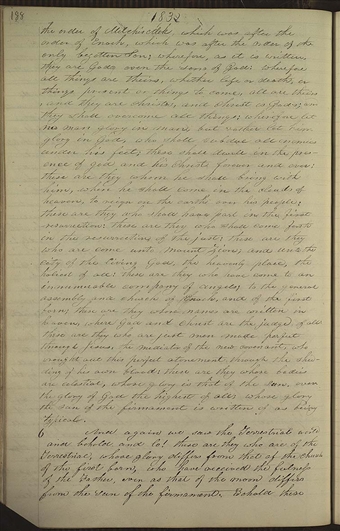 188
1832
the order of Melchisedek, which was after the
order of Enoch, which was after the order of the
only begotten Son; wherefore, as it is written,
they are Gods even the sons of God: wherefore
all things are theirs, whether life or death, or
things present or things to come, all are theirs
and they are Christs, and Christ is Gods; and
they shall overcome all things; wherefore let
no man glory in man, but rather let him
glory in God, who shall subdue all enemies
under his feet; these shall dwell in the pres-
ence of God and his Christ forever and ever:
these are they whom he shall bring with
him, when he shall come in the clouds of
heaven, to reign on the earth over his people;
these are they who shall have part in the first
resurrection; these are they who shall come forth
in the resurrection of the just; these are they
who are come unto Mount Zion, and unto the
city of the living God, the heavenly place, the
holiest of all: these are they who have come to an
innumerable company of angels; to the general
assembly and church of Enoch, and of the first
born; these are they whose names are written in
heaven, where God and Christ are the judge of all
these are they who are just men made perfect
through Jesus, the mediator of the new covenant, who
wrought out this perfect atonement through the shed-
ding of his own blood: these are they whose bodies
are celestial, whose glory is that of the sun, even
the glory of God the highest of all; whose glory
the sun of the firmament is written of as being
typical.
6 And again we saw the Terrestrial world
and behold and lo! these are they who are of the
Terrestrial, whose glory differs from that of the church
of the first born, who have received the fulness
of the Father, even as that of the moon differs
from the sun of the firmament. Behold these